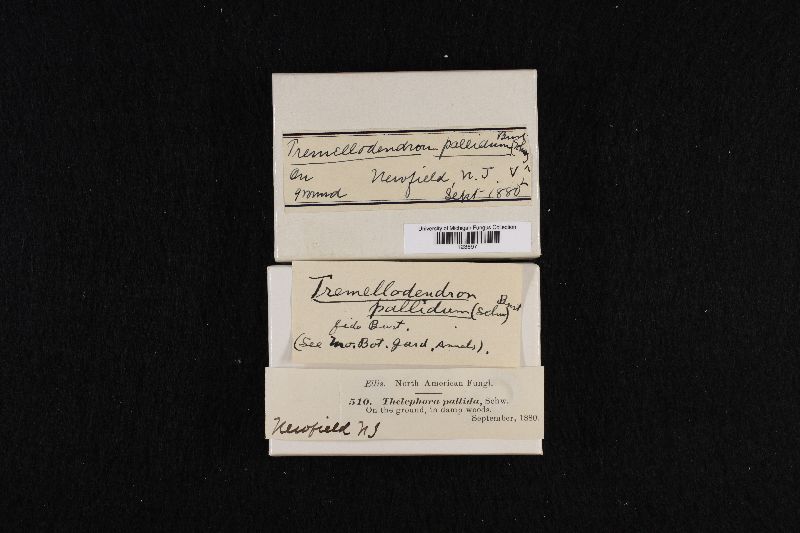 Tremellodendron pallidum (Schw) Burt
On Newfield, N. J.
ground Sept. 1880
University of Michigan Fungus Collection
Tremellodendron
pallidum (Schw) Burt
fide Burt.
(See Mo. Bot. Gard. Annals).
Ellis. North American Fungi.
510. Thelephora pallida, Schw.
On the ground, in damp woods.
September, 1880.
Newfield NJ